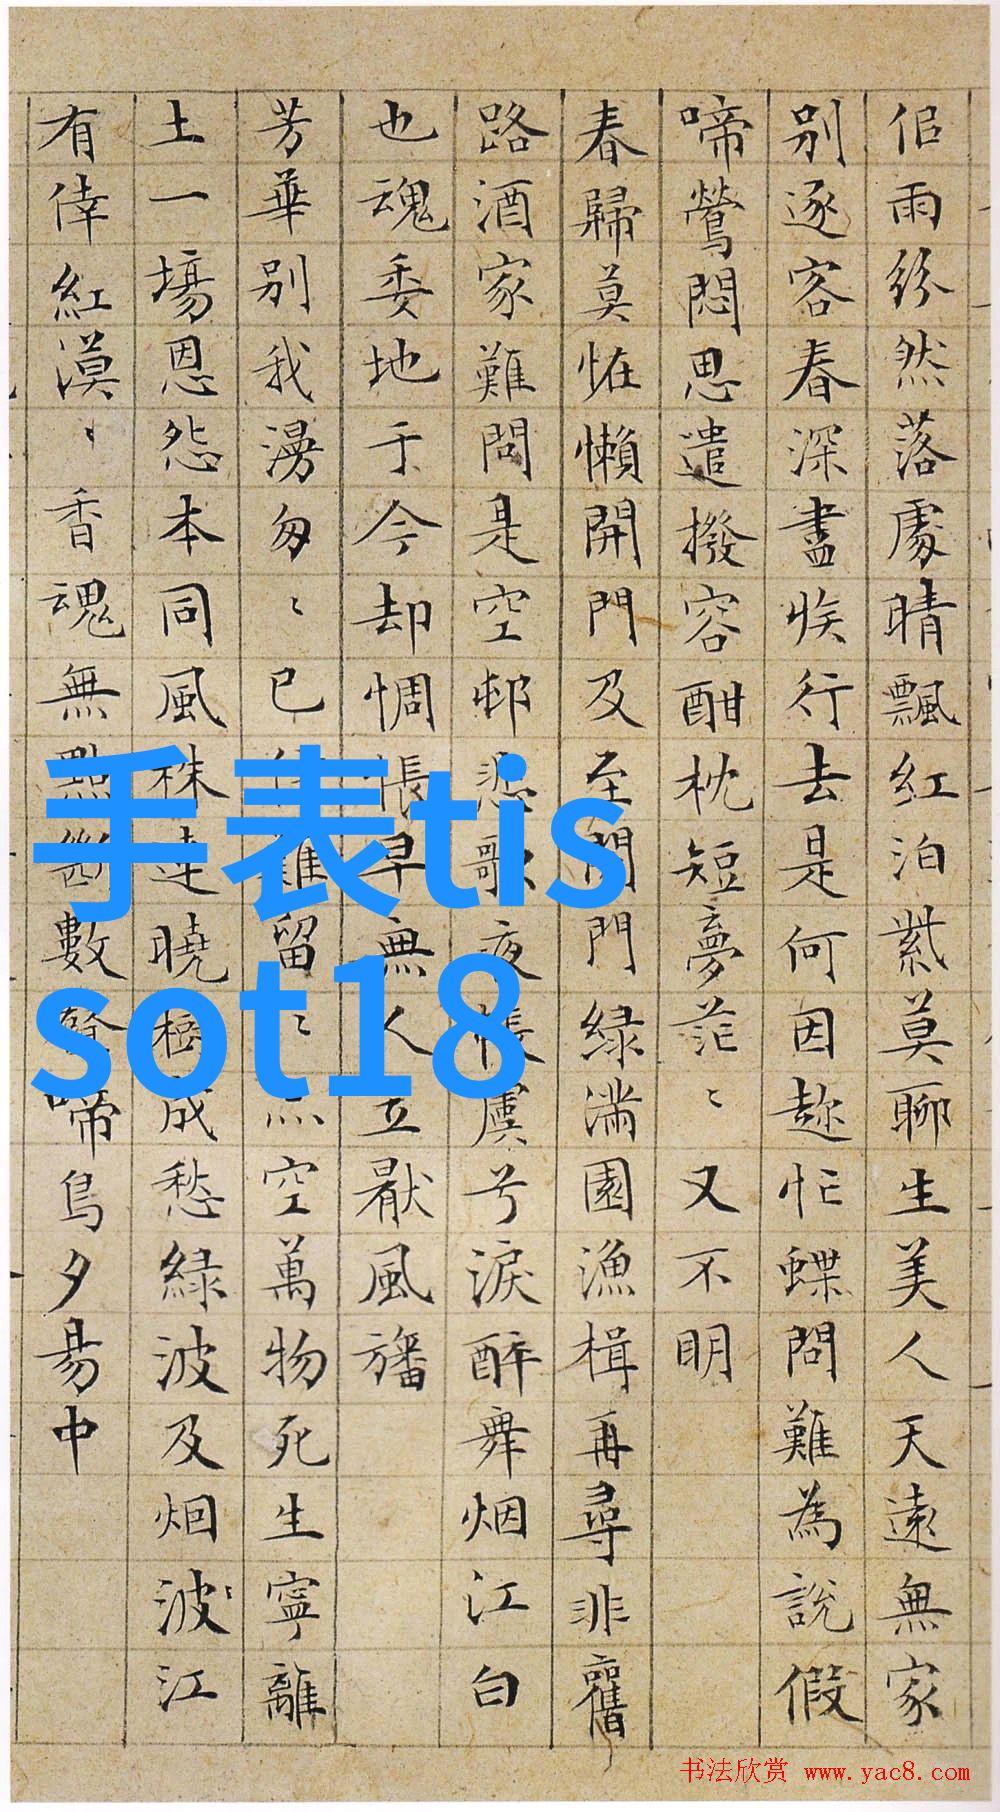 佀雨紛然落處晴飄紅泊紫莫聊生美人天遠無家
別逐客春深盡疾行去是何因趂忙蝶問難為說假
啼鶯悶思遣撥容酣枕短夢茫〻又不明
春歸莫恠懶開門及至開門綠滿園漁楫再尋非舊
路酒家難問是空邨悲歌夜帳虞兮淚醉舞烟江白
也魂委地于今却惆悵早無人立厭風旛
芳華別我漫匆〻已難留〻空萬物死生寧離
土一場恩怨本同風株連曉樹成愁綠波及烟波江
有倖紅漠〻香魂無點斷數聲啼鳥夕易中
手表tis
sot18
书法欣赏 www.yac8.com